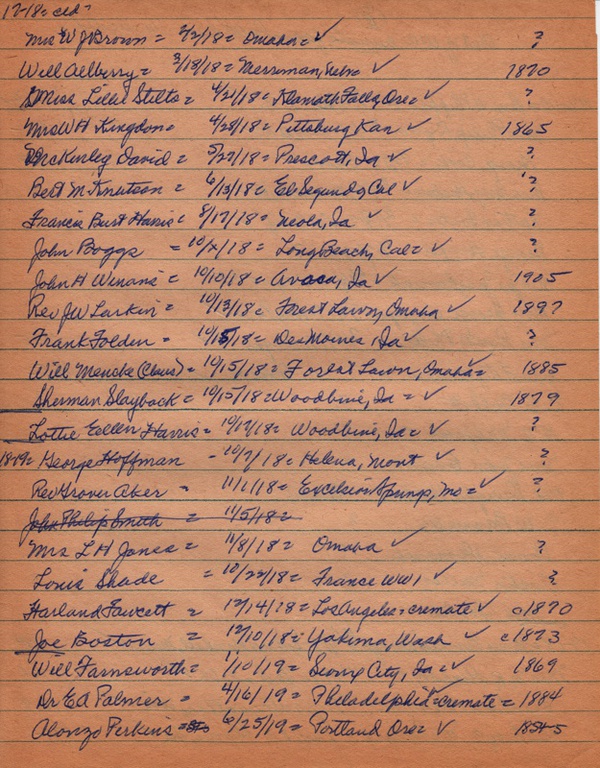 17-18 = cld?
Mrs W J Brown = 2/2/18 = Omaha = ✓ ?
Will Aelberry = 3/18/18 = Merriman, Nebr ✓ 1870
Miss Lillie Stilts = 4/21/18 = Klamath Falls, Ore = ✓ ?
Mrs W H Kingdon = 4/28/18 = Pittsburg Kan ✓ 1865
McKinley David = 5/27/18 = Prescott, Ia ✓ ?
Bert M Knutson = 6/13/18 = El Segundo, Cal ✓ ?
Francis Burt Harris = 8/17/18 = Neola, Ia ✓ ?
John Boggs = 10/x/18 = Long Beach, Cal = ✓ ?
John H Winans = 10/10/18 = Avoca, Ia ✓ 1905
Rev J W Larkin = 10/13/18 = Forest Lawn, Omaha ✓ 1897
Frank Folden = 10/15/18 = Des Moines, Ia ✓ ?
Will Mencke (Claus) = 10/15/18 = Forest Lawn, Omaha = 1885
Sherman Slayback = 10/15/18 = Woodbine, Ia = ✓ 1879
Lottie Eellen Harris = 10/17/18 = Woodbine, Ia = ✓ ?
1879 = George Hoffman - 10/7/18 = Helena, Mont ✓ ?
Rev Grover Aker = 11/1/18 = Excelsior Springs, Mo = ✓ ?
John Philip Smith = 11/5/18 =
Mrs L H Jones = 11/8/18 = Omaha ✓ ?
Louis Shade = 10/22/18 = France WW1 ✓ ?
Harland Fawcett = 12/14/18 = Los Angeles = cremate ✓ c1870
Joe Boston = 12/10/18 = Yakima, Wash ✓ c1873
Will Farnsworth = 1/10/19 = Sioux City, Ia = ✓ 1869
Dr Ed Palmer = 4/16/19 = Philadelphia = cremate = 1884
Alonzo Perkins = 6/25/19 = Portland Ore = ✓